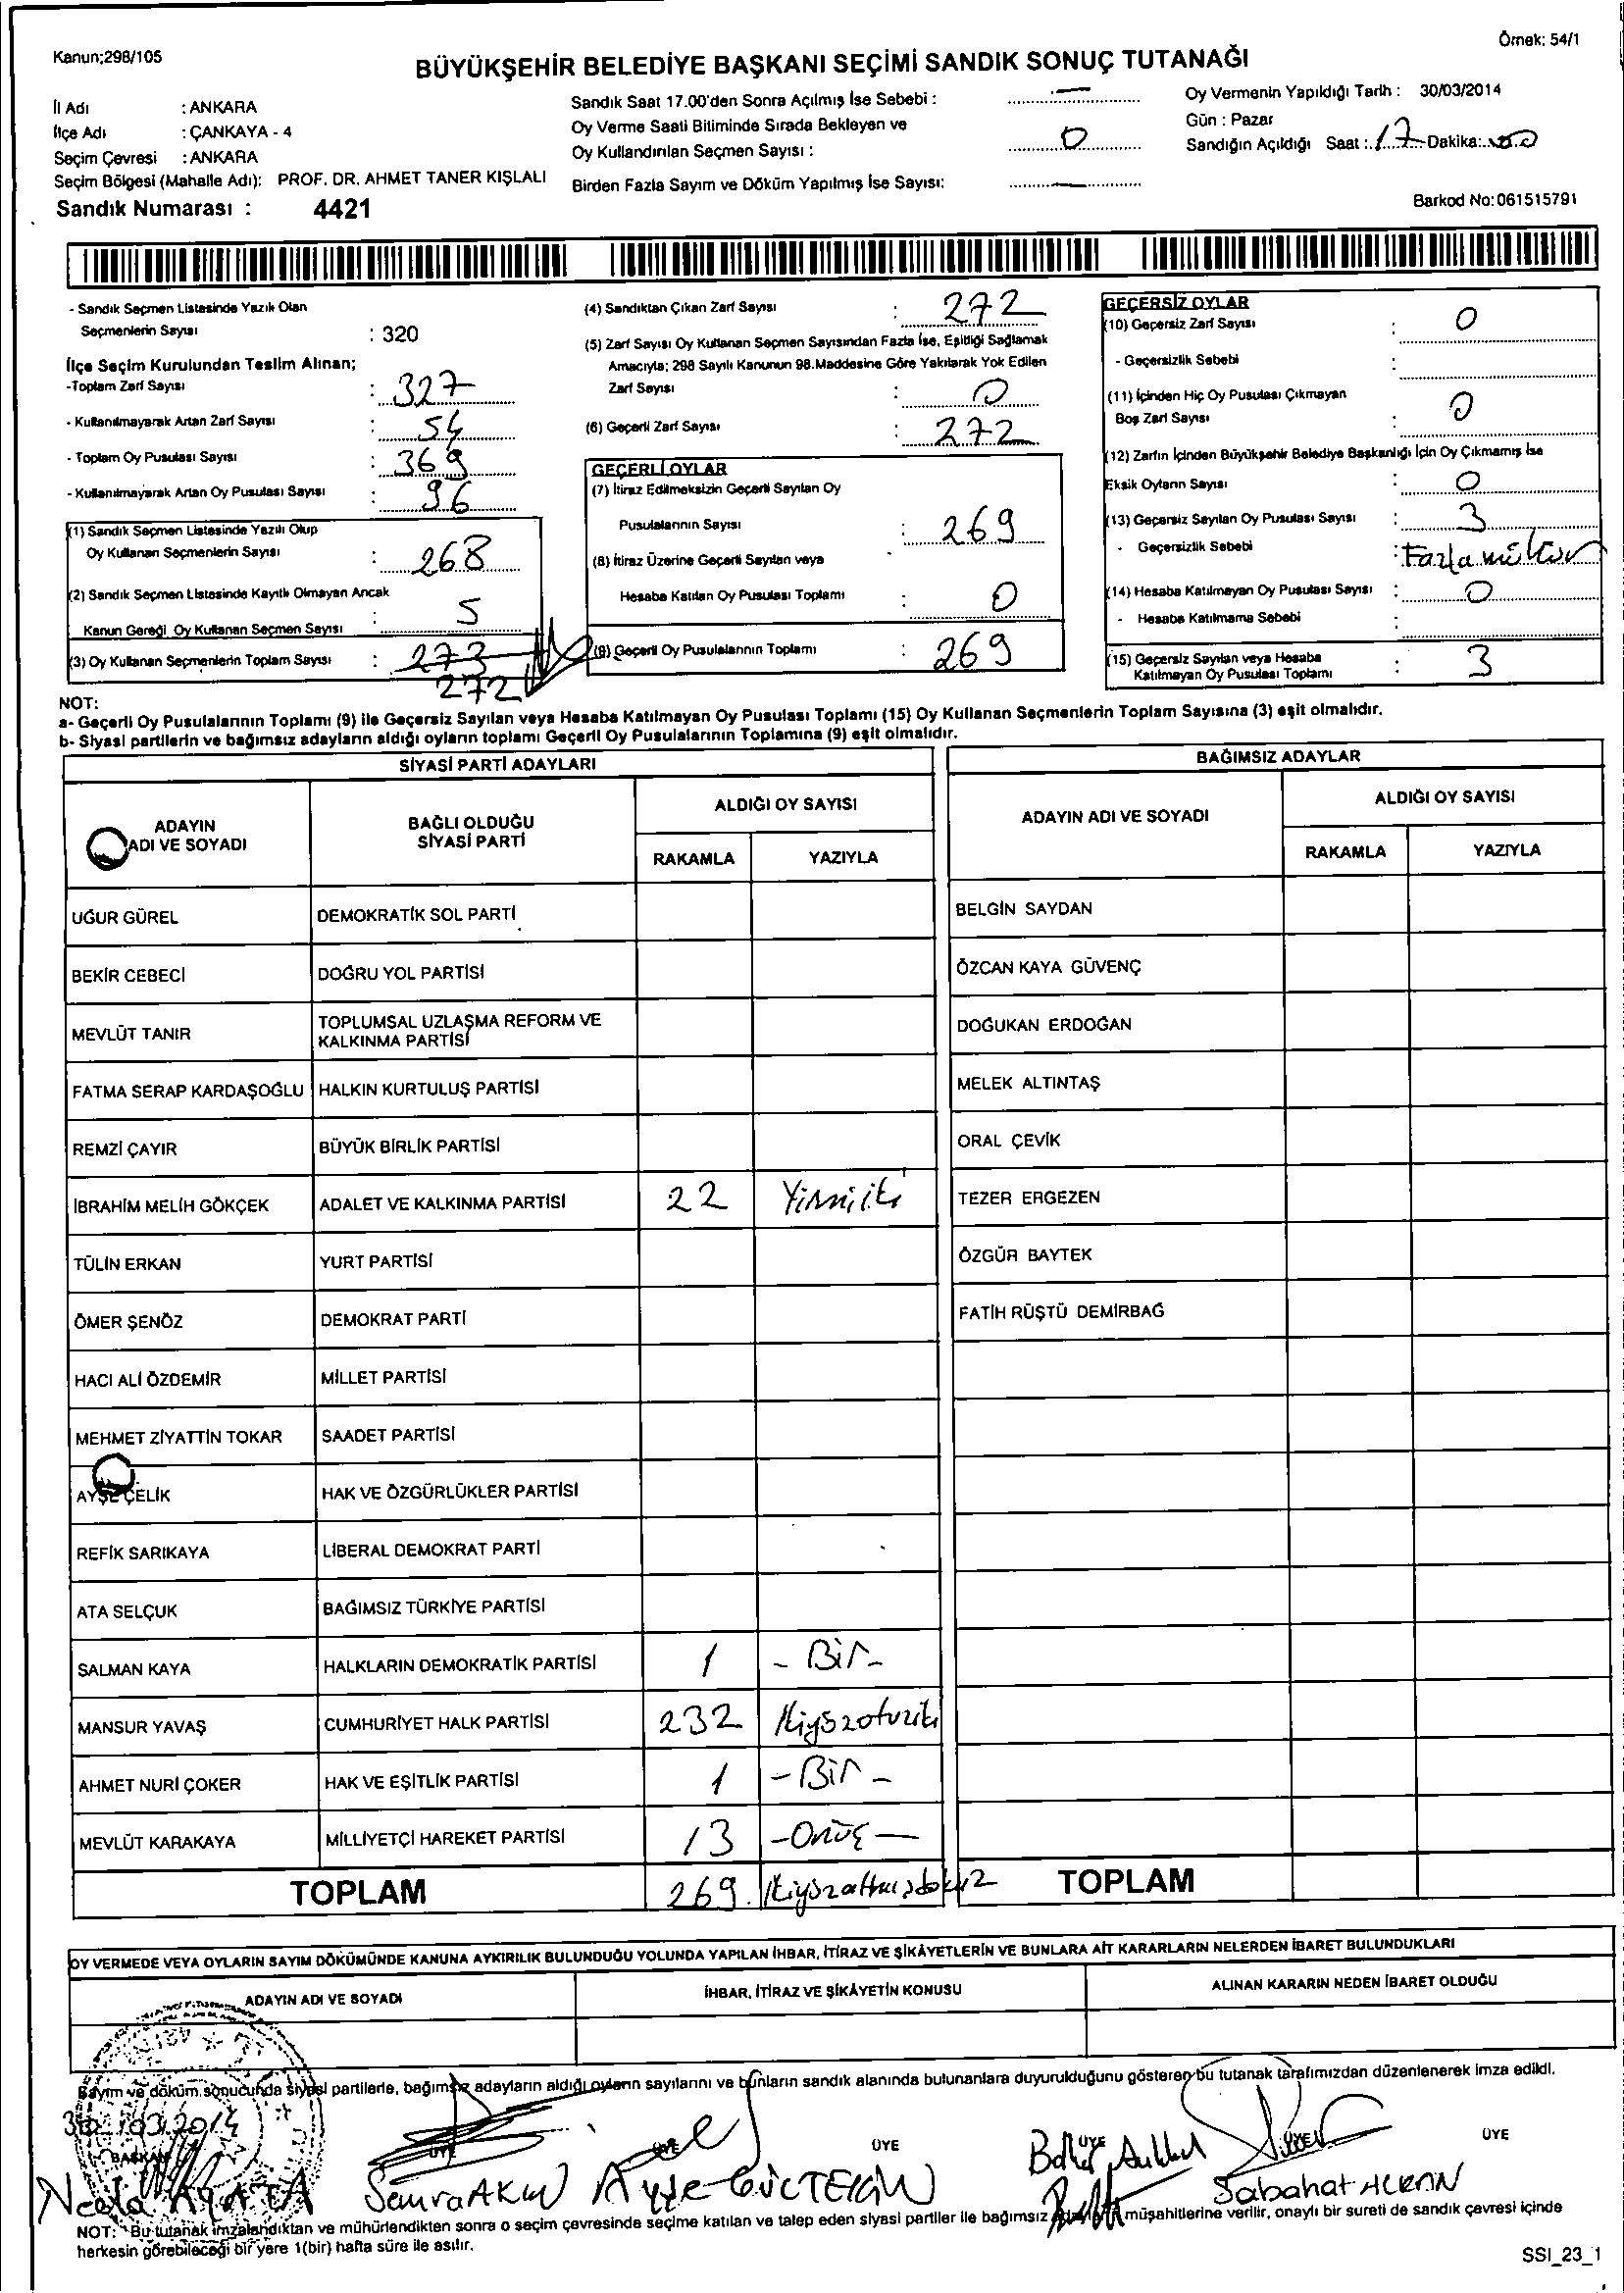 Kanun;298/105
Örnek: 54/1
BÜYÜKŞEHİR BELEDİYE BAŞKANI SEÇİMİ SANDIK SONUÇ TUTANAĞI
İl Adı : ANKARA
İlçe Adı : ÇANKAYA - 4
Seçim Çevresi : ANKARA
Seçim Bölgesi (Mahalle Adı): PROF. DR. AHMET TANER KIŞLALI
Sandık Numarası : 4421
Sandık Saat 17.00'den Sonra Açılmış İse Sebebi : —
Oy Verme Saati Bitiminde Sırada Bekleyen ve
Oy Kullandırılan Seçmen Sayısı : 0
Birden Fazla Sayım ve Döküm Yapılmış İse Sayısı: —
Oy Vermenin Yapıldığı Tarih : 30/03/2014
Gün : Pazar
Sandığın Açıldığı Saat : 17 Dakika: 00
Barkod No:061515791
- Sandık Seçmen Listesinde Yazılı Olan
Seçmenlerin Sayısı : 320
İlçe Seçim Kurulundan Teslim Alınan;
-Toplam Zarf Sayısı : 327
- Kullanılmayarak Artan Zarf Sayısı : 54
- Toplam Oy Pusulası Sayısı : 369
- Kullanılmayarak Artan Oy Pusulası Sayısı : 96
(1) Sandık Seçmen Listesinde Yazılı Olup
Oy Kullanan Seçmenlerin Sayısı : 268
(2) Sandık Seçmen Listesinde Kayıtlı Olmayan Ancak
Kanun Gereği Oy Kullanan Seçmen Sayısı : 5
(3) Oy Kullanan Seçmenlerin Toplam Sayısı : 273
272
(4) Sandıktan Çıkan Zarf Sayısı : 272
(5) Zarf Sayısı Oy Kullanan Seçmen Sayısından Fazla İse, Eşitliği Sağlamak
Amacıyla; 298 Sayılı Kanunun 98.Maddesine Göre Yakılarak Yok Edilen
Zarf Sayısı : 0
(6) Geçerli Zarf Sayısı : 272
GEÇERLİ OYLAR
(7) İtiraz Edilmeksizin Geçerli Sayılan Oy
Pusulalarının Sayısı : 269
(8) İtiraz Üzerine Geçerli Sayılan veya
Hesaba Katılan Oy Pusulası Toplamı : 0
(9) Geçerli Oy Pusulalarının Toplamı : 269
GEÇERSİZ OYLAR
(10) Geçersiz Zarf Sayısı : 0
- Geçersizlik Sebebi :
(11) İçinden Hiç Oy Pusulası Çıkmayan
Boş Zarf Sayısı : 0
(12) Zarfın İçinden Büyükşehir Belediye Başkanlığı İçin Oy Çıkmamış İse
Eksik Oyların Sayısı : 0
(13) Geçersiz Sayılan Oy Pusulası Sayısı : 3
- Geçersizlik Sebebi : Fazla mühür
(14) Hesaba Katılmayan Oy Pusulası Sayısı : 0
- Hesaba Katılmama Sebebi :
(15) Geçersiz Sayılan veya Hesaba
Katılmayan Oy Pusulası Toplamı : 3
NOT:
a- Geçerli Oy Pusulalarının Toplamı (9) ile Geçersiz Sayılan veya Hesaba Katılmayan Oy Pusulası Toplamı (15) Oy Kullanan Seçmenlerin Toplam Sayısına (3) eşit olmalıdır.
b- Siyasi partilerin ve bağımsız adayların aldığı oyların toplamı Geçerli Oy Pusulalarının Toplamına (9) eşit olmalıdır.
SİYASİ PARTİ ADAYLARI
ADAYIN
ADI VE SOYADI
BAĞLI OLDUĞU
SİYASİ PARTİ
ALDIĞI OY SAYISI
RAKAMLA YAZIYLA
UĞUR GÜREL DEMOKRATİK SOL PARTİ
BEKİR CEBECİ DOĞRU YOL PARTİSİ
MEVLÜT TANIR TOPLUMSAL UZLAŞMA REFORM VE
KALKINMA PARTİSİ
FATMA SERAP KARDAŞOĞLU HALKIN KURTULUŞ PARTİSİ
REMZİ ÇAYIR BÜYÜK BİRLİK PARTİSİ
İBRAHİM MELİH GÖKÇEK ADALET VE KALKINMA PARTİSİ 22 Yirmiiki
TÜLİN ERKAN YURT PARTİSİ
ÖMER ŞENÖZ DEMOKRAT PARTİ
HACI ALİ ÖZDEMİR MİLLET PARTİSİ
MEHMET ZİYATTİN TOKAR SAADET PARTİSİ
AYŞE ÇELİK HAK VE ÖZGÜRLÜKLER PARTİSİ
REFİK SARIKAYA LİBERAL DEMOKRAT PARTİ
ATA SELÇUK BAĞIMSIZ TÜRKİYE PARTİSİ
SALMAN KAYA HALKLARIN DEMOKRATİK PARTİSİ 1 - Bir -
MANSUR YAVAŞ CUMHURİYET HALK PARTİSİ 232 İkiyüzotuziki
AHMET NURİ ÇOKER HAK VE EŞİTLİK PARTİSİ 1 - Bir -
MEVLÜT KARAKAYA MİLLİYETÇİ HAREKET PARTİSİ 13 - Onüç -
TOPLAM 269. İkiyüzaltmışdokuz
BAĞIMSIZ ADAYLAR
ADAYIN ADI VE SOYADI
ALDIĞI OY SAYISI
RAKAMLA YAZIYLA
BELGİN SAYDAN
ÖZCAN KAYA GÜVENÇ
DOĞUKAN ERDOĞAN
MELEK ALTINTAŞ
ORAL ÇEVİK
TEZER ERGEZEN
ÖZGÜR BAYTEK
FATİH RÜŞTÜ DEMİRBAĞ
TOPLAM
OY VERMEDE VEYA OYLARIN SAYIM DÖKÜMÜNDE KANUNA AYKIRILIK BULUNDUĞU YOLUNDA YAPILAN İHBAR, İTİRAZ VE ŞİKÂYETLERİN VE BUNLARA AİT KARARLARIN NELERDEN İBARET BULUNDUKLARI
ADAYIN ADI VE SOYADI
İHBAR, İTİRAZ VE ŞİKÂYETİN KONUSU
ALINAN KARARIN NEDEN İBARET OLDUĞU
Sayım ve döküm sonucunda siyasi partilerle, bağımsız adayların aldığı oyların sayılarını ve bunların sandık alanında bulunanlara duyurulduğunu gösteren bu tutanak tarafımızdan düzenlenerek imza edildi.
30/03/2014
BAŞKAN ÜYE ÜYE ÜYE ÜYE ÜYE ÜYE
Semra AKIN Ayşe GÜLTEKİN Sabahat ALKAN
NOT: Bu tutanak imzalandıktan ve mühürlendikten sonra o seçim çevresinde seçime katılan ve talep eden siyasi partiler ile bağımsız müşahitlerine verilir, onaylı bir sureti de sandık çevresi içinde
herkesin görebileceği bir yere 1(bir) hafta süre ile asılır.
SSI_23_1